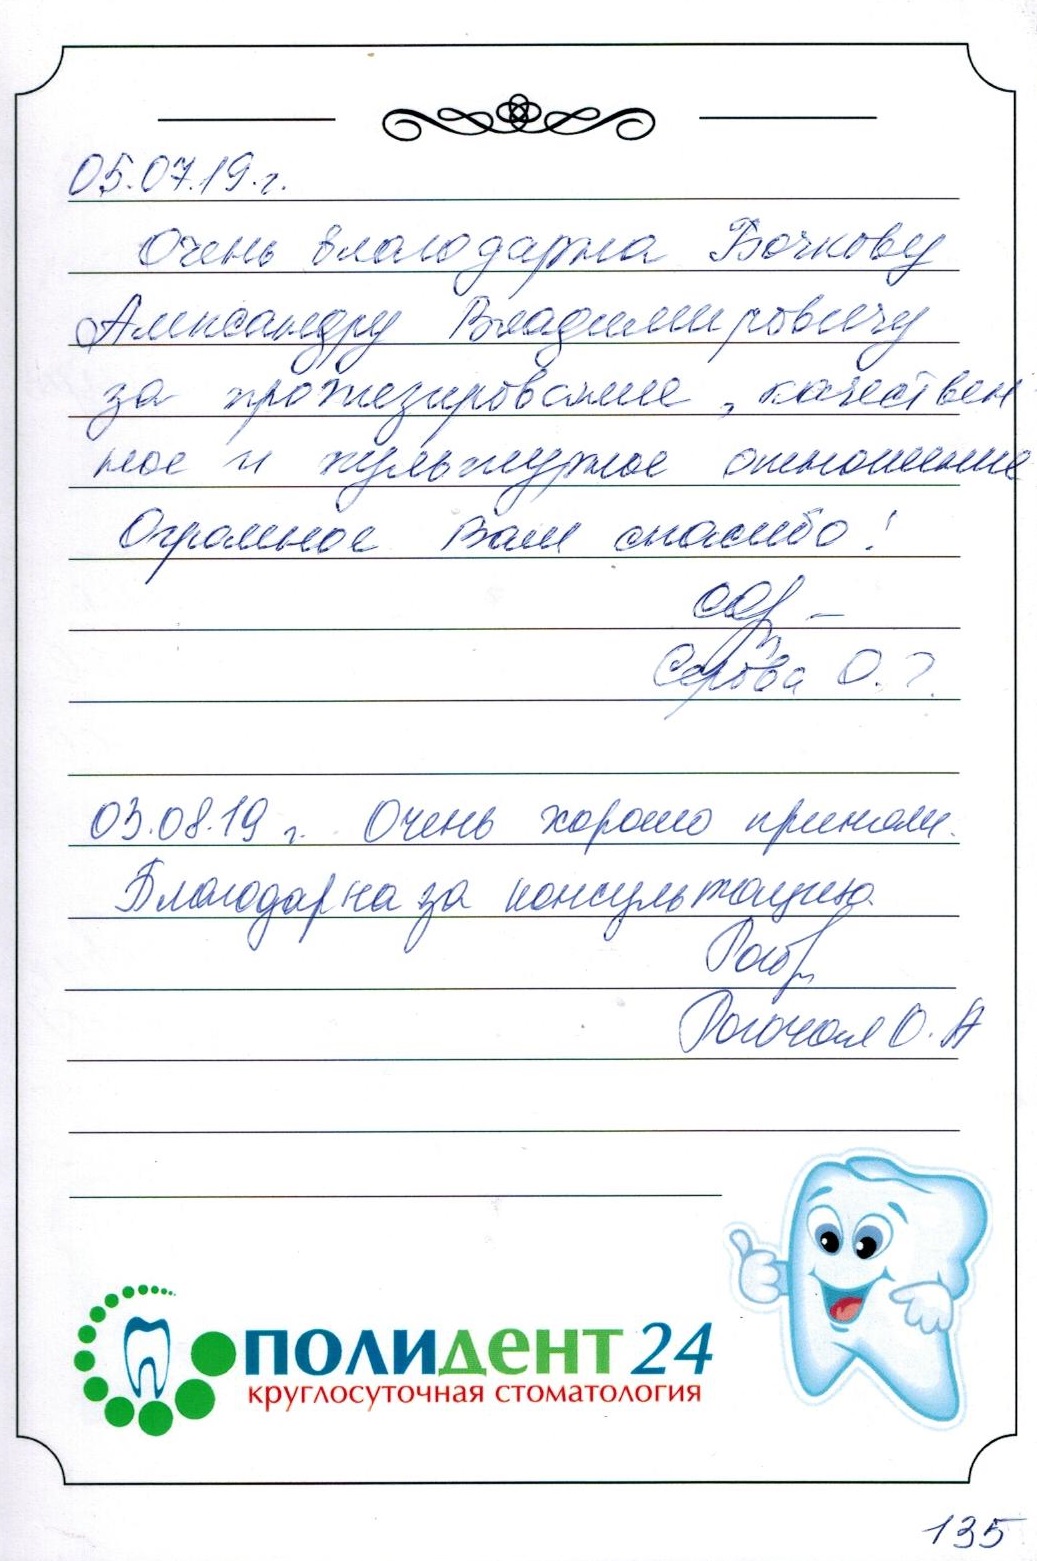 05.07.19.г.
Очень благодарна Бочкову
Александру Владимировичу
за протезирование, качествен
ное и культурное отношение
Огромное Вам спасибо!
Серова О.Г.
03.08.19 г. Очень хорошо приняли.
Благодарна за консультацию.
О.А
ПОЛИДЕНТ 24
круглосуточная стоматология
135